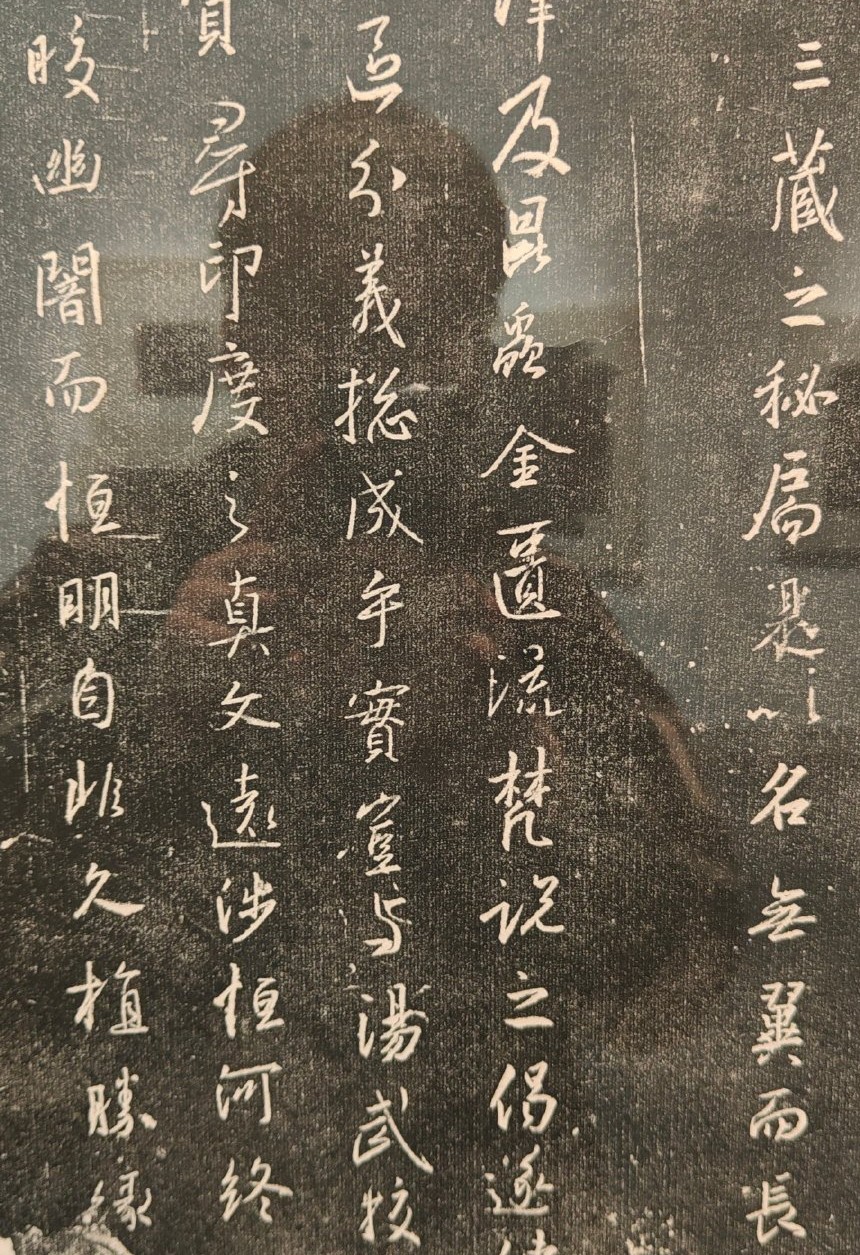 三藏之秘扃是以名無翼而長
及昆蟲金匱流梵說之偈遂
區分義捴成乎實豈與湯武校
尋印度之真文遠涉恒河終
皎幽闇而恒明自非久植勝緣